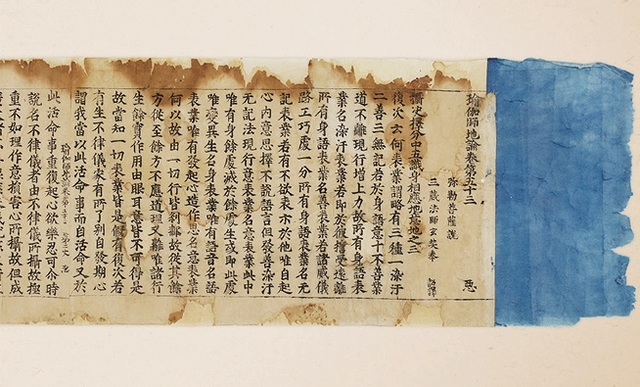 瑜伽師地論卷第五十三 惡
弥勒菩薩說
三藏法師玄奘奉 詔譯
攝決擇分中五識身相應地意地之三
復次云何表業謂略有三種一染汙
二善三無記若於身語意十不善業
道不離現行增上力故所有身語表
業名染汙表業若即於彼誓受遠離
所有身語表業名善表業若諸威儀
路工巧處一分所有身語表業名无
記表業若有不欲表示於他唯自起
心內意思擇不說語言但發善染汙
无記法現行意表業名意表業此中
唯有身餘處滅於餘處生或即此處
唯變異生名身表業唯有語音名語
表業唯有發起心造作思名意表業
何以故由一切行皆剎那故從其餘
方徙至餘方不應道理又離唯諸行
生餘實作用由眼耳意皆不可得是
故當知一切表業皆是假有復次若
有生不律儀家有所了別自發期心
謂我當以此活命事而自活命又於
此活命事重復起心欲樂忍可介時
說名不律儀者由不律儀所攝故極
重不如理作意損害心所攝故但成